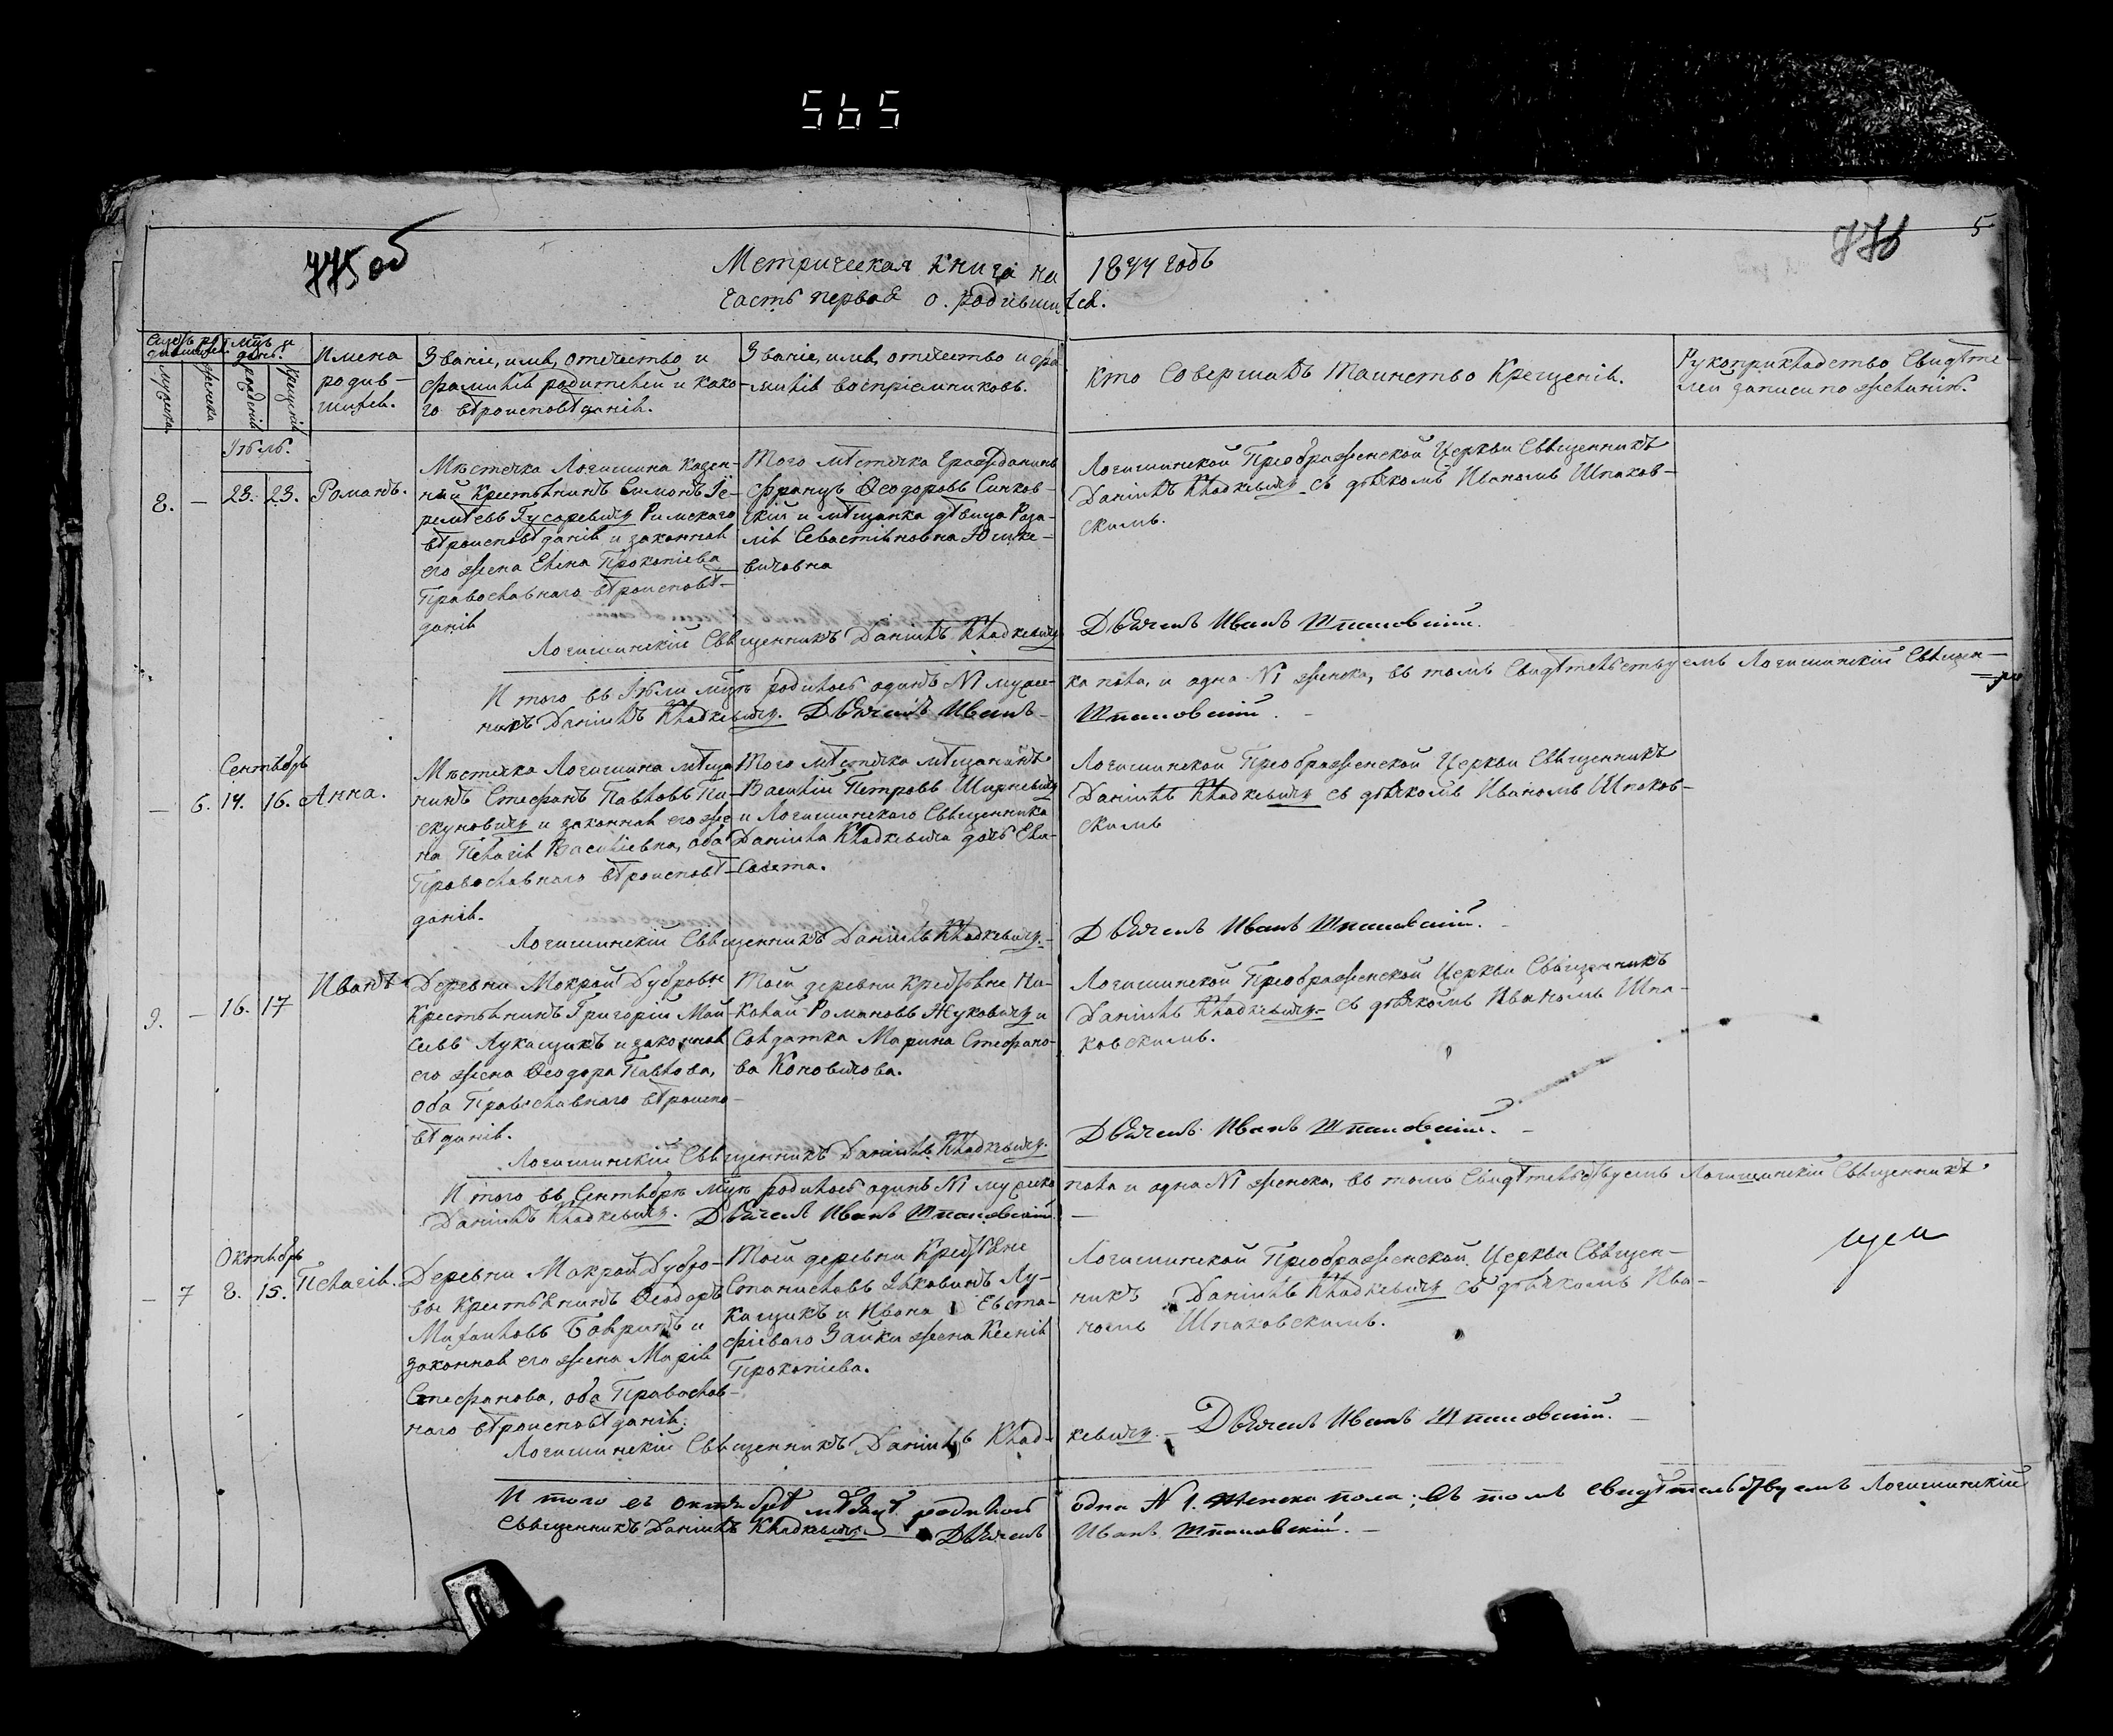 565
775 об
776
5
Метрическая Книга на 1844 годъ
Часть первая о родившихся.
Мужеска
Женска
рожденія
Крещенія
Имена
родив-
шихся.
Званіе, имя, отечество и
фамилія родителей и како-
го вѣроисповѣданія.
Званіе, имя, отечество и фа-
милія воспріемниковъ.
Кто совершалъ Таинство Крещенія.
Рукоприкладство Свидѣте-
лей записи по желанію.
Іюль.
8. — 23. 23. Романъ.
Мѣстечка Логишина казен-
ный крестьянинъ Симонъ Іе-
реміевъ Гусаревичъ Римскаго
вѣроисповѣданія и законная
его жена Елена Прокопіева
Православнаго вѣроисповѣ-
данія
Того мѣстечка Гражданинъ
Францъ Ѳеодоровъ Синков-
скій и мѣщанка дѣвица Роза-
лія Севастіяновна Юшке-
вичовна
Логишинской Преображенской Церкви Священникъ
Даніилъ Кладкевичъ съ дьякомъ Иваномъ Шпаков-
скимъ.
Логишинскій Священникъ Даніилъ Кладкевичъ
Дьячекъ Иванъ Шпаковскій.
И того въ Іюли мцѣ родилось одинъ №1 мужес-
ка пола, и одна №1 женска, въ томъ Свидѣтельствуемъ Логишинскій Священ-
никъ Даніилъ Кладкевичъ. Дьячекъ Иванъ
Шпаковскій.
Сентябрь
— 6. 14. 16. Анна.
Мѣстечка Логишина мѣща-
нинъ Стефанъ Павловъ Пи-
скуновичъ и законная его же-
на Пелагія Василіевна, оба
Православнаго вѣроисповѣ-
данія.
Того мѣстечка мѣщанинъ
Василій Петровъ Ширневичъ
и Логишинскаго Священника
Даніила Кладкевича дочь Ели-
савета.
Логишинской Преображенской Церкви Священникъ
Даніилъ Кладкевичъ съ дьякомъ Иваномъ Шпаков-
скимъ
Логишинскій Священникъ Даніилъ Кладкевичъ.
Дьячекъ Иванъ Шпаковскій.
9. — 16. 17 Иванъ
Деревни Мокрой Дубровы
Крестьянинъ Григорій Мой-
сіевъ Лукащикъ и законная
его жена Ѳеодора Павлова,
оба Православнаго вѣроиспо-
вѣданія.
Тоей деревни Крестьяне Ни-
колай Романовъ Жуковичъ и
Солдатка Марина Стефано-
ва Коновичова.
Логишинской Преображенской Церкви Священникъ
Даніилъ Кладкевичъ съ дьякомъ Иваномъ Шпа-
ковскимъ.
Логишинскій Священникъ Даніилъ Кладкевичъ.
Дьячекъ Иванъ Шпаковскій.
И того въ Сентябрѣ мцѣ родилось одинъ №1 мужеска
пола и одна №1 женска, въ томъ Свидѣтельствуемъ Логишинскій Священникъ
Даніилъ Кладкевичъ. Дьячекъ Иванъ Шпаковскій.
Октябрь
— 7 8. 15. Пелагія.
Деревни Мокрой Дубро-
вы Крестьянинъ Ѳеодоръ
Михаиловъ Бовринъ и
законная его жена Марія
Стефанова, оба Православ-
наго вѣроисповѣданія.
Тоей деревни Крестьяне
Станиславъ Яковинъ Лу-
кащикъ и Ивана Евста-
фіеваго Зайки жена Ксенія
Прокопіева.
Логишинской Преображенской Церкви Священ-
никъ Даніилъ Кладкевичъ съ дьякомъ Ива-
номъ Шпаковскимъ.
Логишинскій Священникъ ДаніилъКлад-
кевичъ. Дьячекъ Иванъ Шпаковскій.
И того въ Октябрѣ мѣсяцѣ родилось одна №1. женска пола; въ томъ свидѣтельствуемъ Логишинскій
Священникъ Даніилъ Кладкевичъ. Дьячекъ Иванъ Шпаковскій.